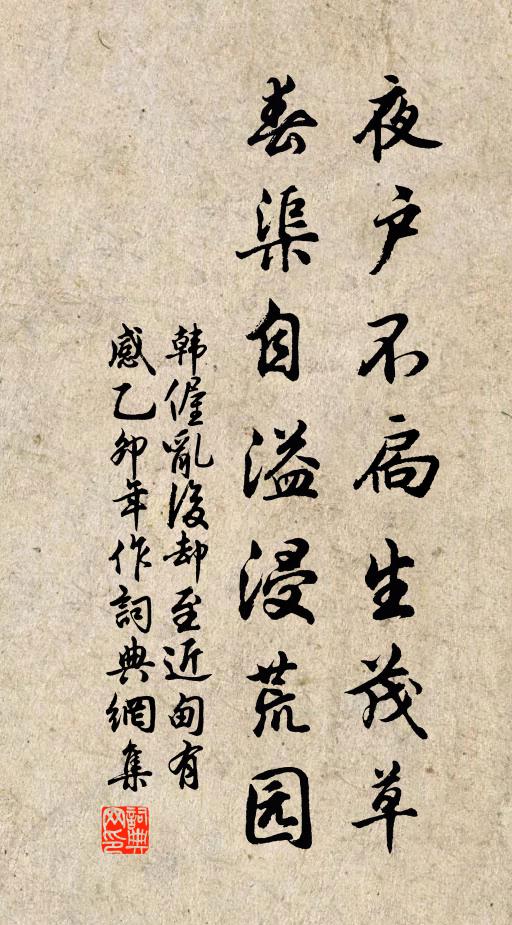 夜户不扃生茂草
春渠自溢浸荒园
韩偓亂後却至近甸有
感乙卯年作詞典網集
詞典网印